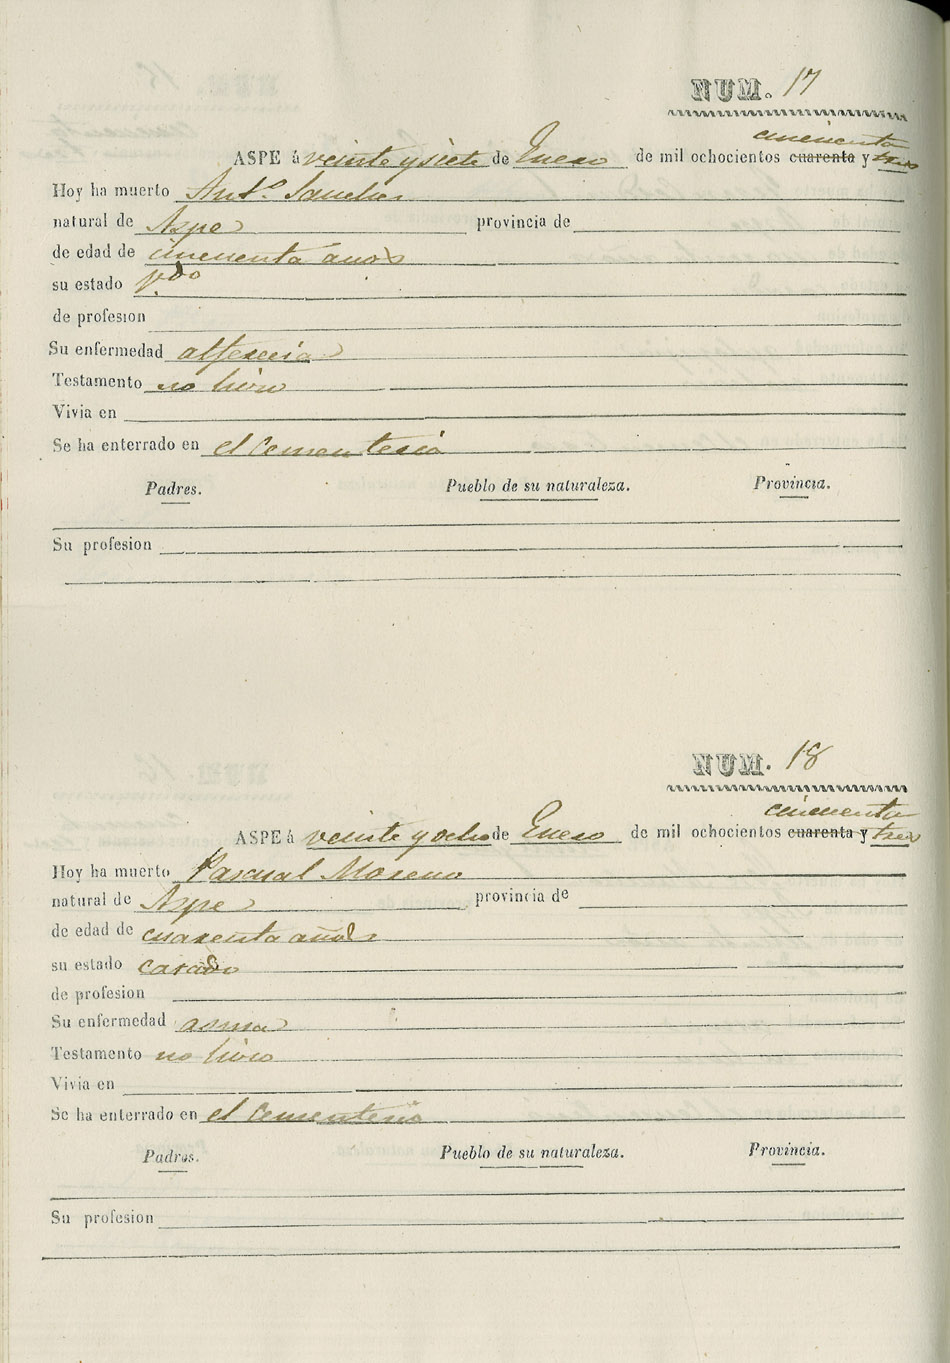 NUM. 17
cincuenta
ASPE á veinte y siete de Enero de mil ochocientos cuarenta y tres
Hoy ha muerto Antº. Sanchez
natural de Aspe provincia de
de edad de cincuenta años
su estado
de profesion
Su enfermedad alferecia
Testamento no hizo
Vivia en
Se ha enterrado en el Cementerio
Padres. Pueblo de su naturaleza. Provincia.
Su profesion
NUM. 18
cincuenta
ASPE á veinte y ocho de Enero de mil ochocientos cuarenta y tres
Hoy ha muerto Pascual Moreno
natural de Aspe provincia de
de edad de cuarenta años
su estado casado
de profesion
Su enfermedad asma
Testamento no hizo
Vivia en
Se ha enterrado en el Cementerio
Padres. Pueblo de su naturaleza. Provincia.
Su profesion